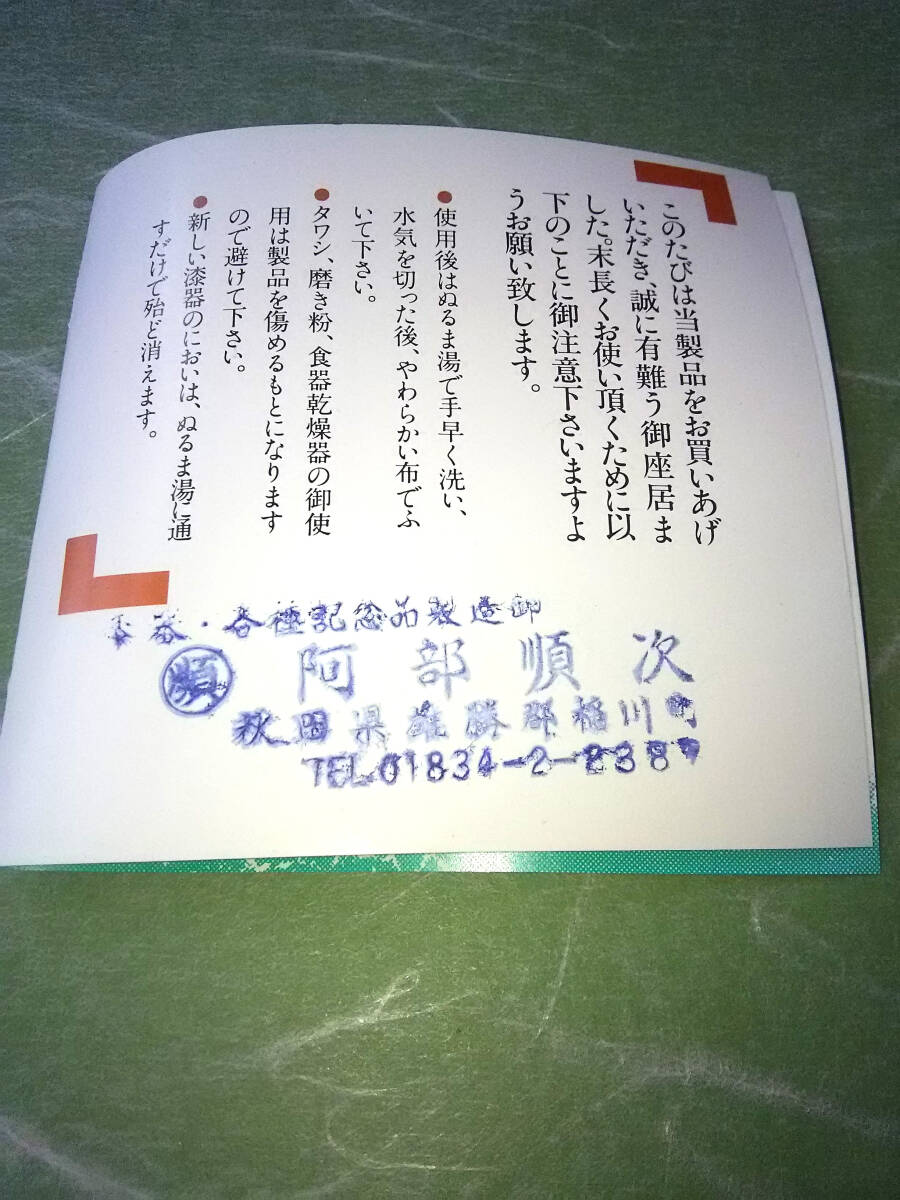 このたびは当製品をお買いあげ
いただき、誠に有難う御座居ま
した。末長くお使い頂くために以
下のことに御注意下さいますよ
うお願い致します。
●使用後はぬるま湯で手早く洗い、
水気を切った後、やわらかい布でふ
いて下さい。
●タワシ、磨き粉、食器乾燥器の御使
用は製品を傷めるもとになります
ので避けて下さい。
●新しい漆器のにおいは、ぬるま湯に通
すだけで殆ど消えます。
・各種記念品製造卸
順 阿部順次
秋田県雄勝郡稲川町
TEL01834-2-2387